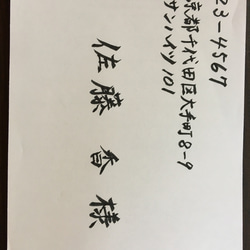 23-4567
京都千代田区大手町8-9
サンハイツ101
佐藤 香様